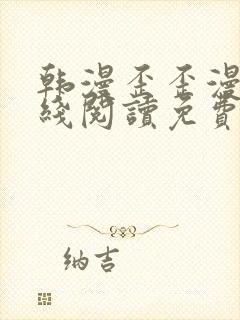 韩漫歪歪漫
綫閱讀免費
纳吉